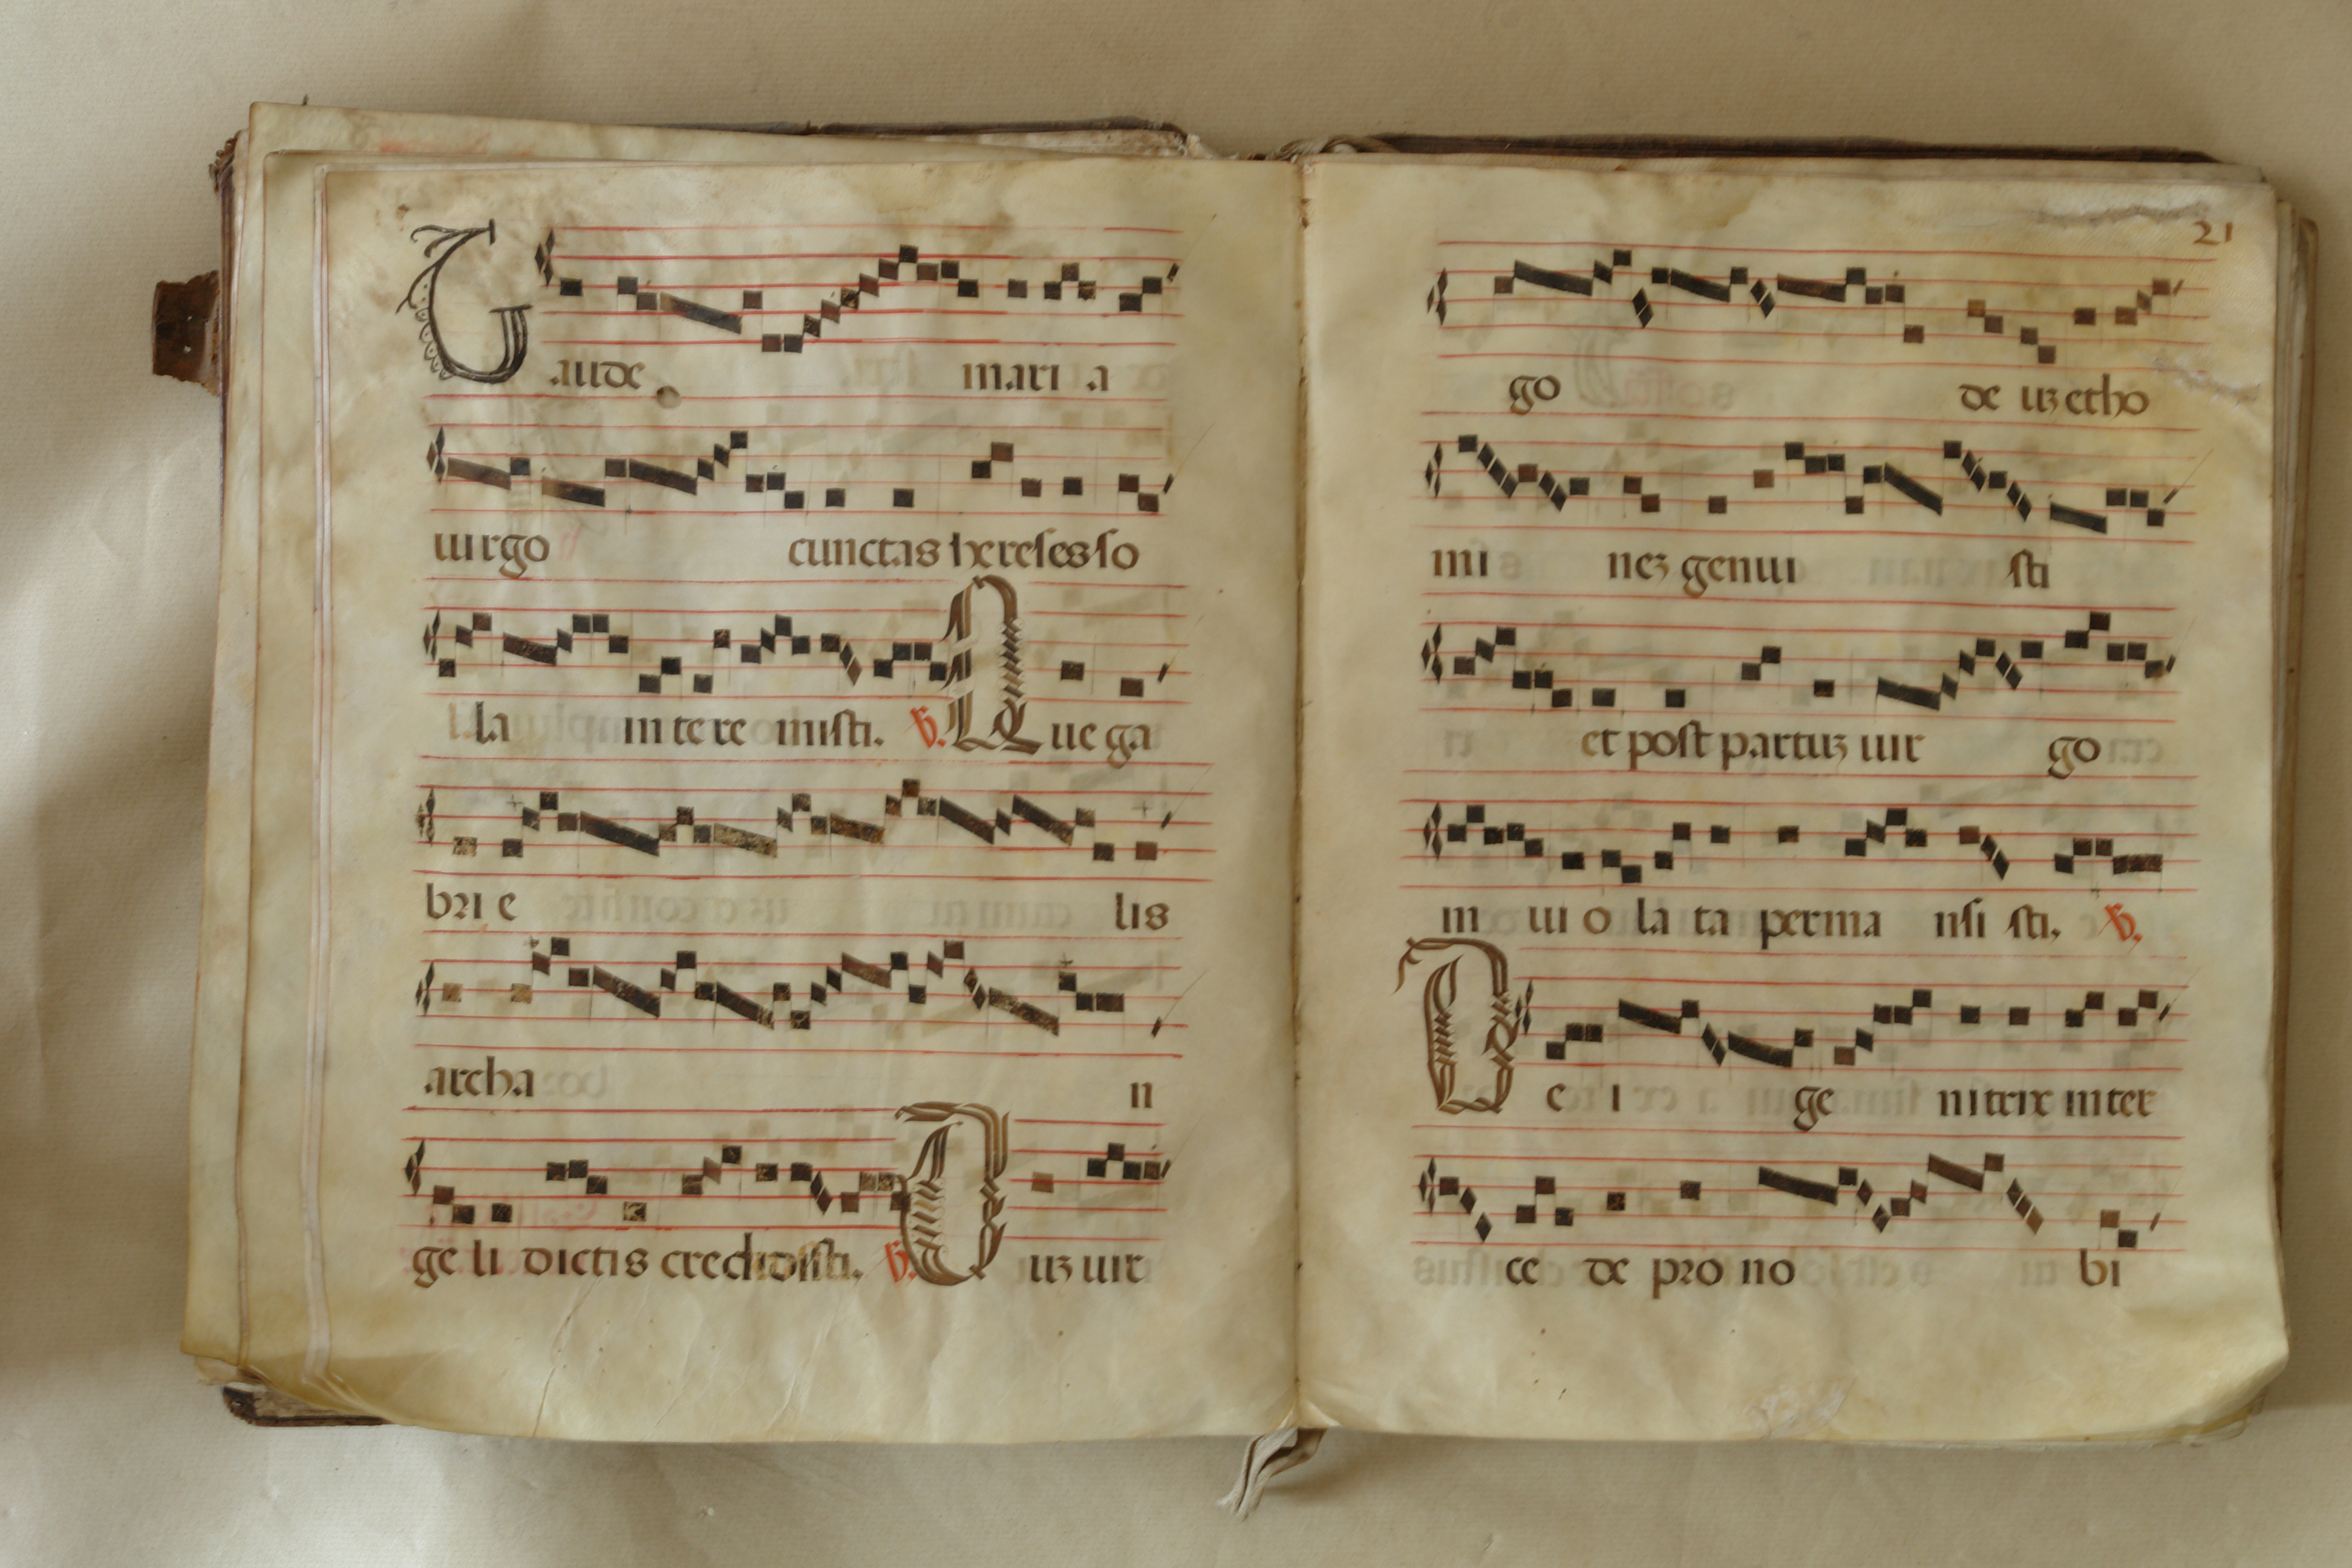 Gaude mari a
uirgo cunctas hereses so
la in te re misti. ℣. Que ga
bri e lis
archa n
ge li dictis credidisti. ℣. Duꝫ uir
21
go de uꝫ et ho
mi neꝫ genui sti
et post partuꝫ uir go
in ui o la ta perma nsi sti. ℣.
De i ge nitrix inter
ce de pro no bi